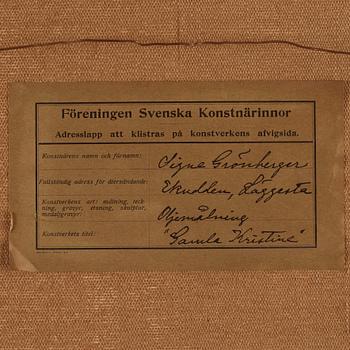 Föreningen Svenska Konstnärinnor
Adresslapp att klistras på konstverkens afvigsida.
Konstnärens namn och förnamn: Signe Grönberger
Fullständig adress för återsändande: Ekudden, Läggesta
Konstverkets art: målning, teck-
ning, gravyr, etsning, skulptur,
medaljgravyr: Oljemålning
Konstverkets titel: "Gamla Kristine"